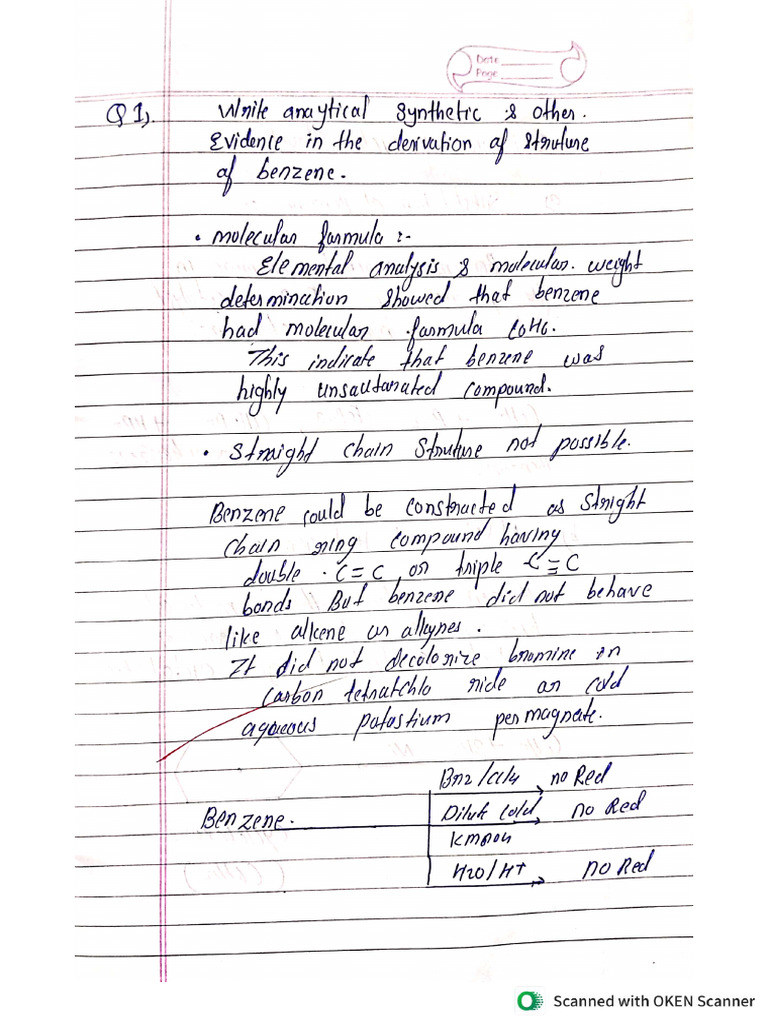 Date
Page
Q 1). Write analytical synthetic & other.
Evidence in the derivation of struture
of benzene.
• molecular formula :-
Elemental analysis & molecular. weight
determination showed that benzene
had molecular formula C6H6.
This indicate that benzene was
highly unsautarated compound.
• straight chain struture not possible.
Benzene could be constracted as stright
chain ring compound having
double . C=C or triple C≡C
bonds But benzene did not behave
like alkene or alkynes.
It did not decolorize bromine in
carbon tetratchlo ride or cold
aqaeous patastium permagnate.
Br2/CCl4 no Red
Benzene. Dilute Cold no Red
KMnO4
H2O/H+ no Red
Scanned with OKEN Scanner